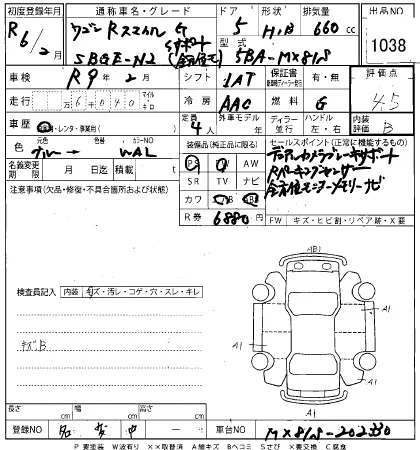 初度登録年月 通称車名・グレード ドア 形状 排気量 出品NO
R6/2月 5 H/B 660 cc 1038
型式
5BA-
車検 R9年2月 シフト 1AT 保証書 有・無 評価点
走行 6 040 マイル キロ 冷房 AAC 燃料 G 4.5
車歴 レンタ・事業用( ) 定員 4人 外車モデル年 ディーラー 並行 ハンドル 左・右 内装評価 B
元色 色替 カラーNO
ブルー → WAL
装備品(純正品に限る) セールスポイント(正常に機能するもの)
PS PW AW
SR TV ナビ
デュアルカメラブレーキサポート
Rパーキングセンサー
全方位モニターメモリーナビ
名義変更期限 月 日 積載 t
注意事項(欠品・修復・不具合箇所および状態)
カワ
R券 6880円
FW キズ・ヒビ割・リペア跡・X要
検査員記入 内装 キズ・汚レ・コゲ・穴・スレ・キレ
キズB
AB1
A1
A1
41
A1
長さ cm 幅 cm 高さ cm
登録NO 車台NO
P 要塗装 W波有り ××取替済 A線キズ Bヘコミ Sさび ×要交換 C腐食